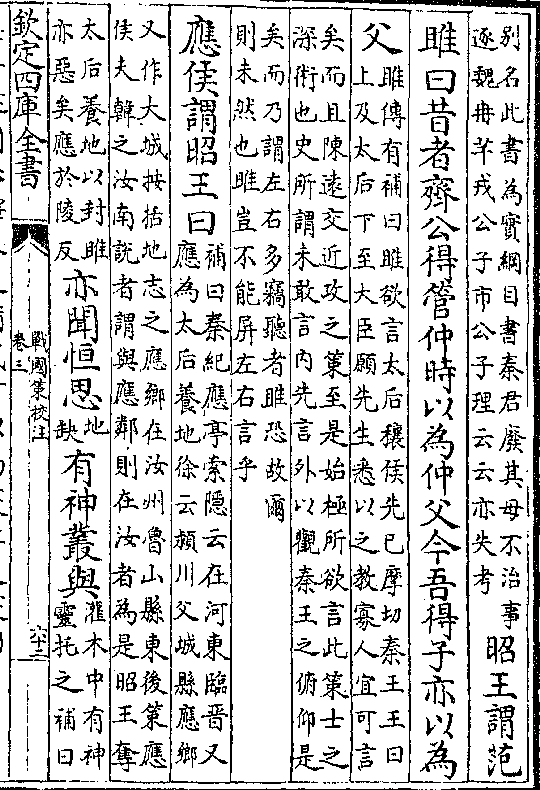 別名此書為實綱目書秦君廢其母不治事
逐魏冉羋戎公子市公子理云云亦失考
昭王謂范
雎曰昔者齊公得管仲時以為仲父今吾得子亦以為
父
雎傳有補曰雎欲言太后穰侯先已摩切秦王王曰
上及太后下至大臣願先生悉以之教寡人宜可言
矣而且陳遠交近攻之策至是始極所欲言此策士之
深術也史所謂未敢言内先言外以觀秦王之俯仰是
矣而乃謂左右多竊聽者雎恐故爾
則未然也雎豈不能屏左右言乎
應侯謂昭王曰
補曰秦紀應亭索隱云在河東臨晉又
應為太后養地徐云潁川父城縣應鄉
又作大城按括地志之應鄉在汝州魯山縣東後策應
侯夫韓之汝南説者謂與應鄰則在汝者為是昭王奪
太后養地以封雎
亦惡矣應於陵反
亦聞恒思
地
缺
有神叢與
灌木中有神
靈托之補曰
欽定四庫全書
戰國策校注
卷三
六十三